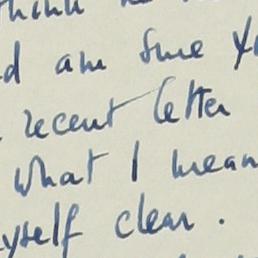 think
d am sure
recent letter
What I mean
yself clear.